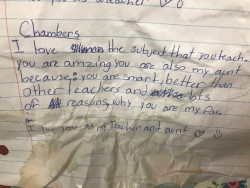 Chambers
I love the subject that you teach.
you are amizing you are also my aunt
because: you are smart, better than
other teachers and lots
of reasons why you are my fav.
I love you my teacher and aunt ♡ ☺